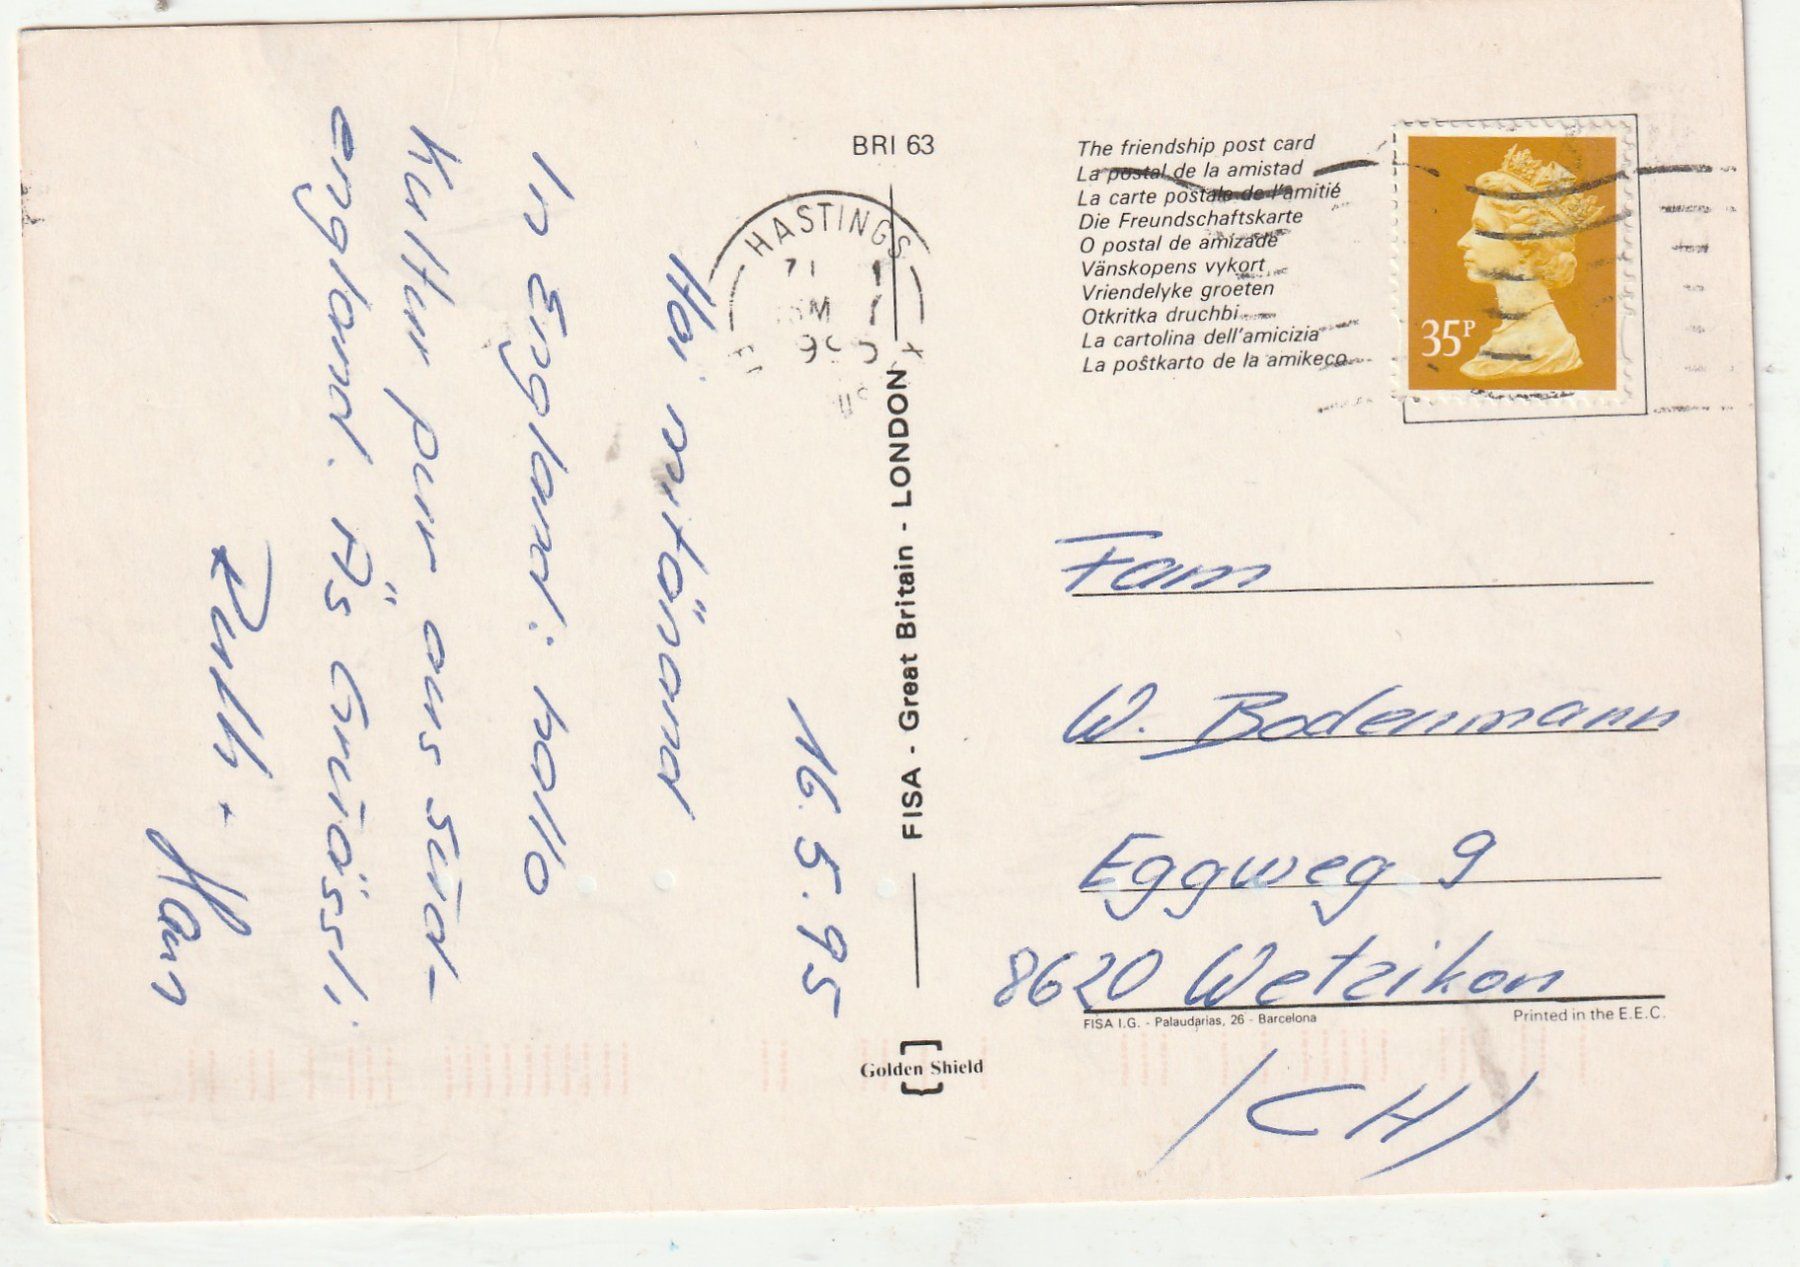 BRI 63
The friendship post card
La postal de la amistad
La carte postale de l'amitié
Die Freundschaftskarte
O postal de amizade
Vänskopens vykort
Vriendelyke groeten
Otkritka druchbi
La cartolina dell'amicizia
La poŝtkarto de la amikeco
35P
HASTINGS
FISA - Great Britain - LONDON
16.5.95
Hoi mitänand
In England: hallo
Kultur pur aus Süd-
england. Äs Grüässli
Ruth +
Hans
Fam
W. Bodenmann
Eggweg 9
8620 Wetzikon
(CH)
FISA I.G. - Palaudarias, 26 - Barcelona
Printed in the E.E.C.
Golden Shield